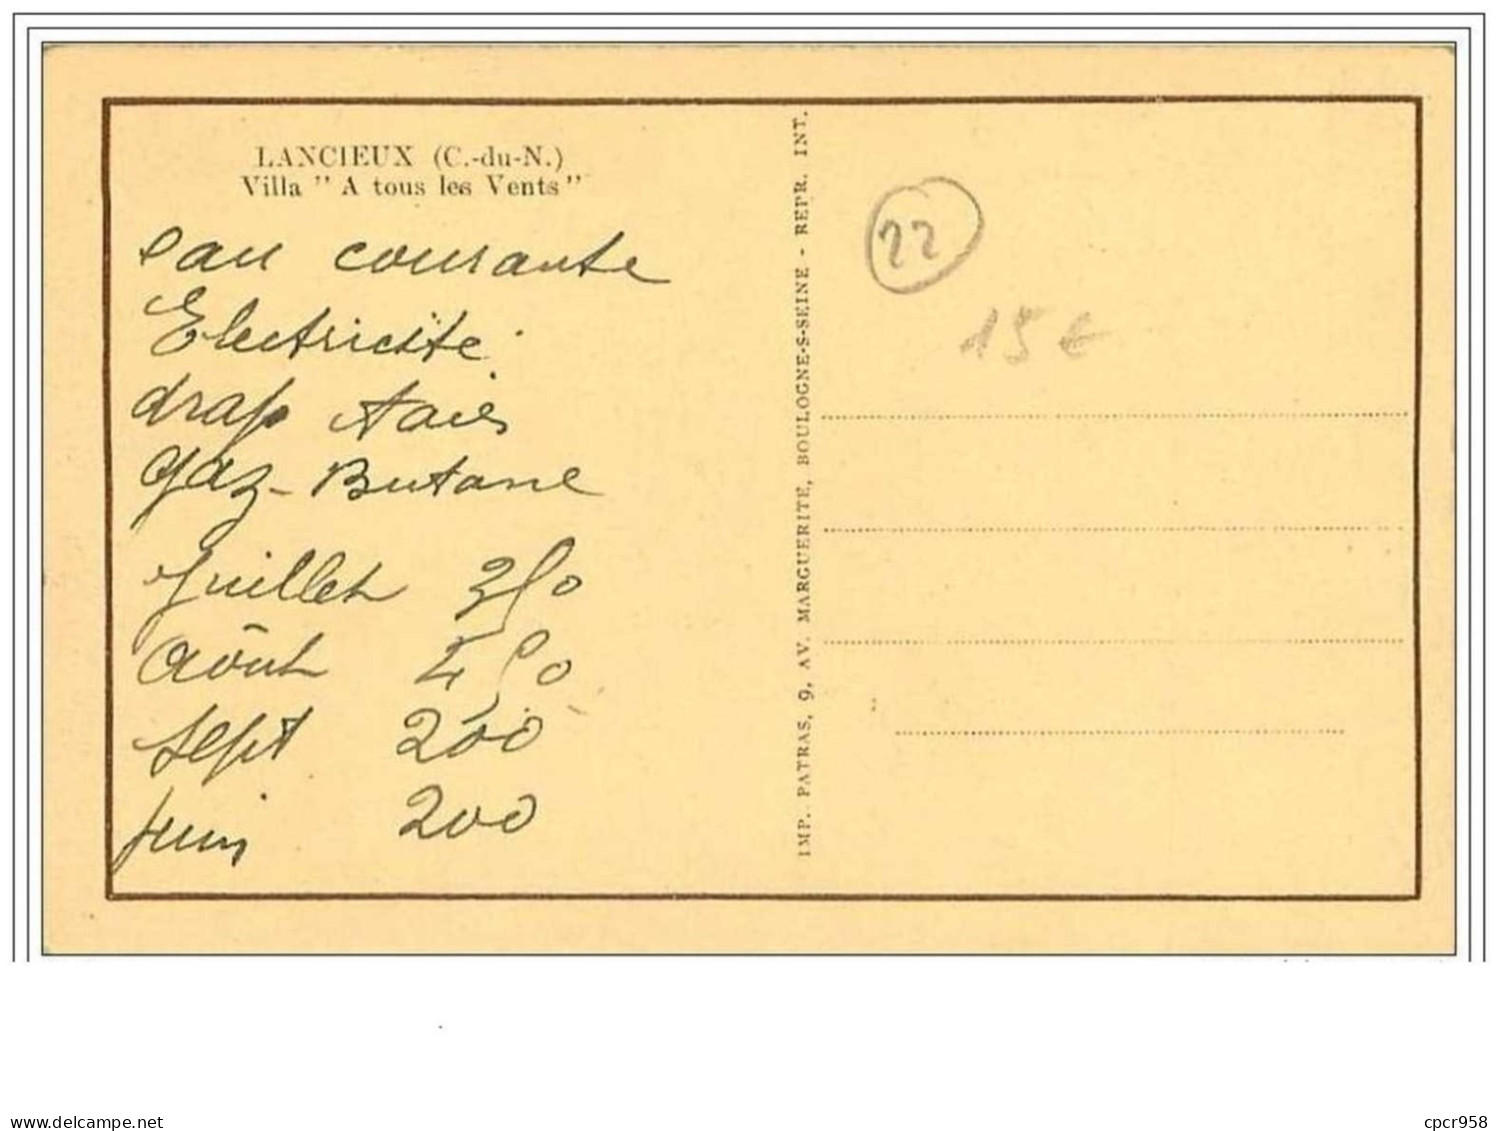 LANCIEUX (C.-du-N.)
Villa " A tous les Vents "
eau courante
Electricité
drap taies
gaz - Butane
Juillet 350
Août 450
Sept 200
Juin 200
IMP. PATRAS, 9, AV. MARGUERITE, BOULOGNE-S-SEINE - REPR. INT.
22
15 €
delcampe.net
cpcr958